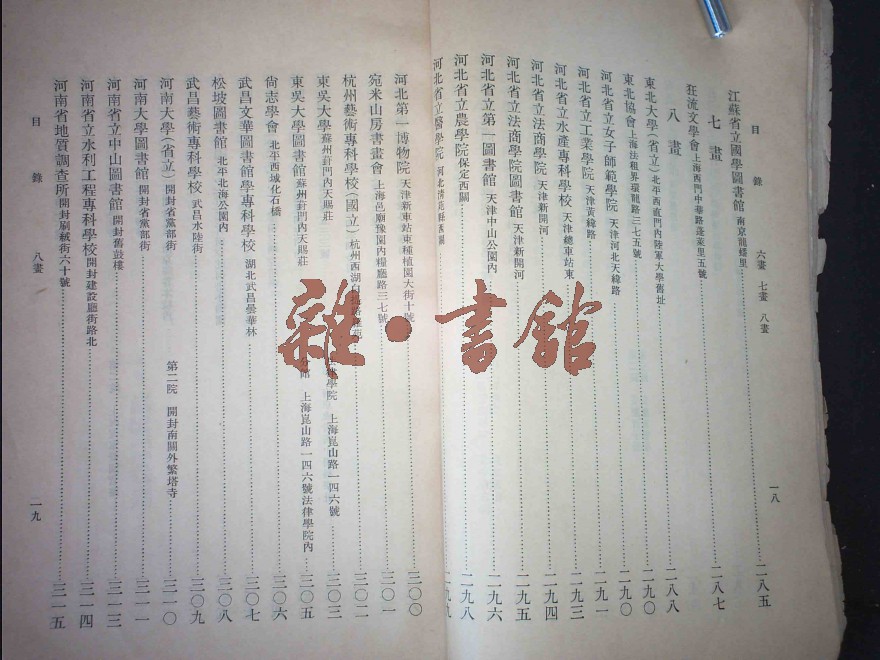 目錄 六畫 七畫 八畫 一八
江蘇省立國學圖書館 南京龍蟠里 二八五
七畫
狂流文學會 上海西門中華路蓬萊里五號 二八七
八畫
東北大學(省立) 北平西直門內陸軍大學舊址 二八八
東北協會 上海法租界環龍路三七五號 二九〇
河北省立女子師範學院 天津河北天緯路 二九一
河北省立工業學院 天津黃緯路 二九三
河北省立水產專科學校 天津總車站東 二九四
河北省立法商學院 天津新開河
河北省立法商學院圖書館 天津新開河
河北省立第一圖書館 天津中山公園內 二九六
河北省立農學院 保定西關 二九八
河北省立醫學院 河北 縣西關 二九九
河北第一博物院 天津新車站東種植園大街十號 三〇〇
宛米山房書畫會 上海邑廟豫園內糧廳路三七號 三〇一
杭州藝術專科學校(國立) 杭州西湖 三〇二
東吳大學 蘇州葑門內天賜莊 學院 上海崑山路一四六號 三〇三
東吳大學圖書館 蘇州葑門內天賜莊 分館 上海崑山路一四六號法律學院內 三〇五
尙志學會 北平西城化石橋 三〇六
武昌文華圖書館學專科學校 湖北武昌曇華林 三〇七
松坡圖書館 北平北海公園內 三〇八
武昌藝術專科學校 武昌水陸街 三〇九
河南大學(省立) 開封省黨部街 第二院 開封南關外繁塔寺 三一〇
河南大學圖書館 開封省黨部街 三一一
河南省立中山圖書館 開封舊鼓樓 三一三
河南省立水利工程專科學校 開封建設廳街路北 三一四
河南省地質調查所 開封刷絨街六十號 三一五
目錄 八畫 一九
雜·書館